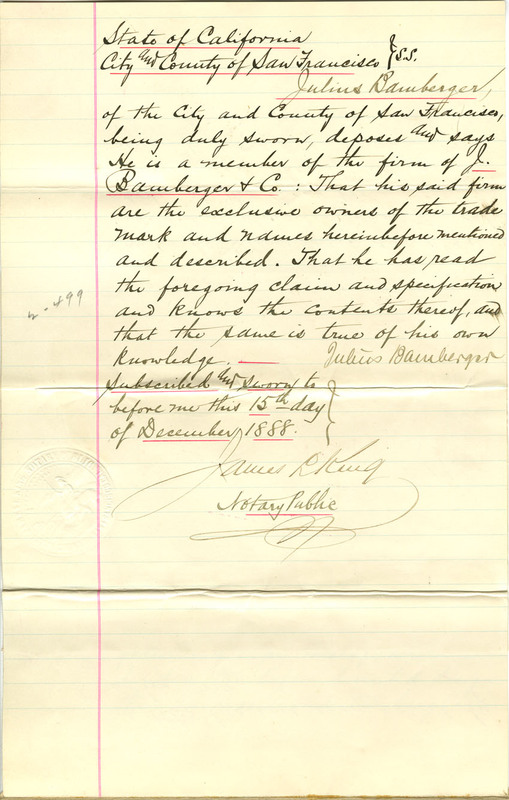 State of California
City and County of San Francisco } S.S.
Julius Bamberger,
of the City and County of San Francisco,
being duly sworn, deposes and says
He is a member of the firm of J.
Bamberger & Co. : That his said firm
are the exclusive owners of the trade
mark and names hereinbefore mentioned
and described. That he has read
the foregoing claim and specification
and knows the contents thereof, and
that the same is true of his own
knowledge. — Julius Bamberger
Subscribed and sworn to
before me this 15th day
of December, 1888.
James L. King
Notary Public
2-499